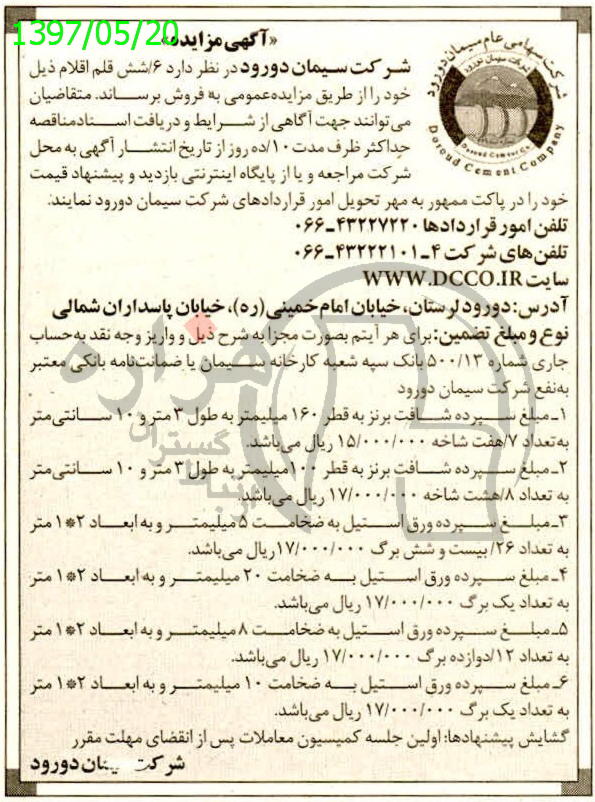 1397/05/20
«آگهی مزایده»
شرکت سهامی عام سیمان دورود
شرکت سیمان دورود
Doroud Cement Co.
Doroud Cement Company
شرکت سیمان دورود در نظر دارد ۶/شش قلم اقلام ذیل
خود را از طریق مزایده عمومی به فروش برساند. متقاضیان
می‌توانند جهت آگاهی از شرایط و دریافت اسناد مناقصه
حداکثر ظرف مدت ۱۰/ده روز از تاریخ انتشار آگهی به محل
شرکت مراجعه و یا از پایگاه اینترنتی بازدید و پیشنهاد قیمت
خود را در پاکت ممهور به مهر تحویل امور قراردادهای شرکت سیمان دورود نمایند.
تلفن امور قراردادها ۴۳۲۲۷۲۲۰-۰۶۶
تلفن‌های شرکت ۴-۴۳۲۲۲۱۰۱-۰۶۶
سایت WWW.DCCO.IR
آدرس: دورود لرستان، خیابان امام خمینی (ره)، خیابان پاسداران شمالی
نوع و مبلغ تضمین: برای هر آیتم بصورت مجزا به شرح ذیل و واریز وجه نقد به حساب
جاری شماره ۵۰۰/۱۳ بانک سپه شعبه کارخانه سیمان یا ضمانت‌نامه بانکی معتبر
به‌نفع شرکت سیمان دورود
۱ـ مبلغ سپرده شافت برنز به قطر ۱۶۰ میلیمتر به طول ۳ متر و ۱۰ سانتی‌متر
به تعداد ۷/هفت شاخه ۱۵/۰۰۰/۰۰۰ ریال می‌باشد.
۲ـ مبلغ سپرده شافت برنز به قطر ۱۰۰ میلیمتر به طول ۳ متر و ۱۰ سانتی‌متر
به تعداد ۸/هشت شاخه ۱۷/۰۰۰/۰۰۰ ریال می‌باشد.
۳ـ مبلغ سپرده ورق استیل به ضخامت ۵ میلیمتر و به ابعاد ۲*۱ متر
به تعداد ۲۶/ بیست و شش برگ ۱۷/۰۰۰/۰۰۰ ریال می‌باشد.
۴ـ مبلغ سپرده ورق استیل به ضخامت ۲۰ میلیمتر و به ابعاد ۲*۱ متر
به تعداد یک برگ ۱۷/۰۰۰/۰۰۰ ریال می‌باشد.
۵ـ مبلغ سپرده ورق استیل به ضخامت ۸ میلیمتر و به ابعاد ۲*۱ متر
به تعداد ۱۲/دوازده برگ ۱۷/۰۰۰/۰۰۰ ریال می‌باشد.
۶ـ مبلغ سپرده ورق استیل به ضخامت ۱۰ میلیمتر و به ابعاد ۲*۱ متر
به تعداد یک برگ ۱۷/۰۰۰/۰۰۰ ریال می‌باشد.
گشایش پیشنهادها: اولین جلسه کمیسیون معاملات پس از انقضای مهلت مقرر
شرکت سیمان دورود
هزاره
گستران